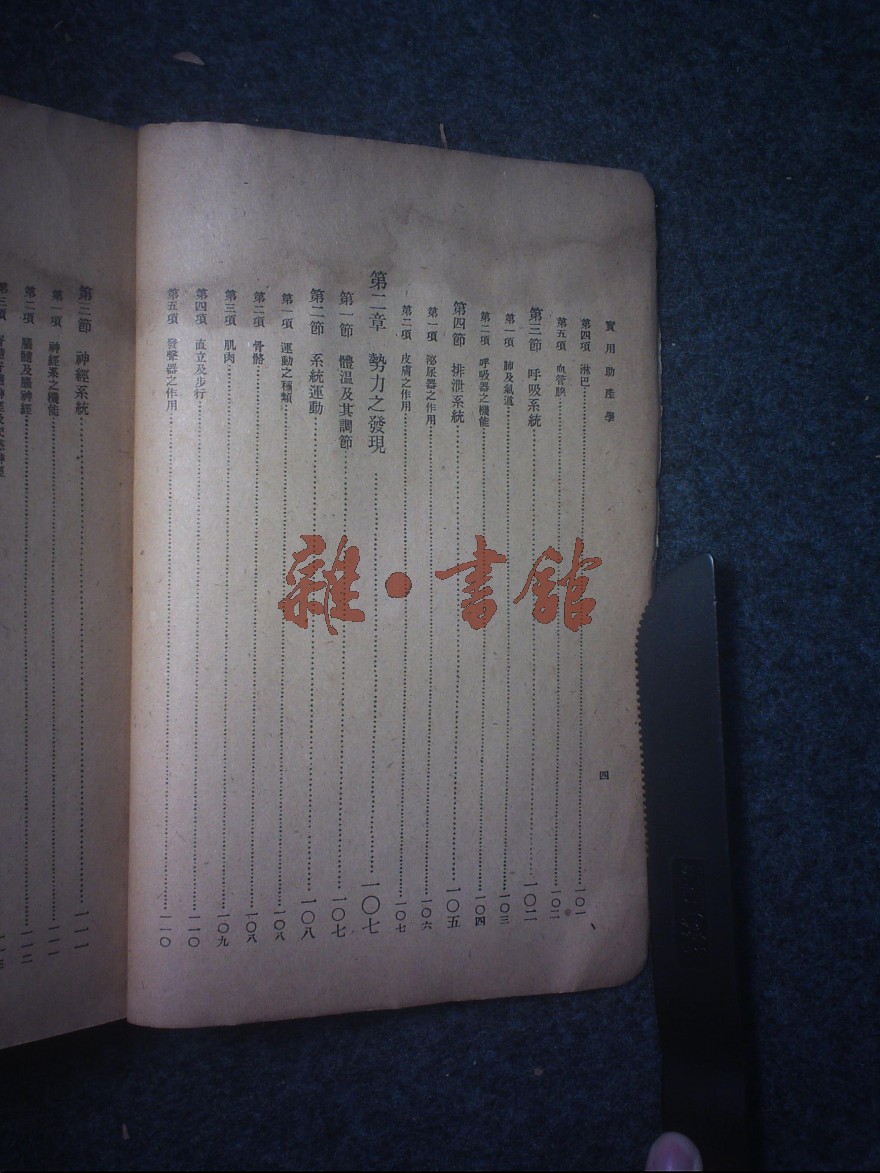 實用助產學
四
第四項 淋巴 一〇一
第五項 血管腺 一〇二
第三節 呼吸系統 一〇二
第一項 肺及氣道 一〇三
第二項 呼吸器之機能 一〇四
第四節 排泄系統 一〇五
第一項 泌尿器之作用 一〇六
第二項 皮膚之作用 一〇七
第二章 勢力之發現 一〇七
第一節 體温及其調節 一〇七
第二節 系統運動 一〇八
第一項 運動之種類 一〇八
第二項 骨骼 一〇八
第三項 肌肉 一〇九
第四項 直立及步行 一一〇
第五項 發聲器之作用 一一〇
第三節 神經系統 一一一
第一項 神經系之機能 一一一
第二項 腦髓及腦神經 一一二
第三項
雜·書館